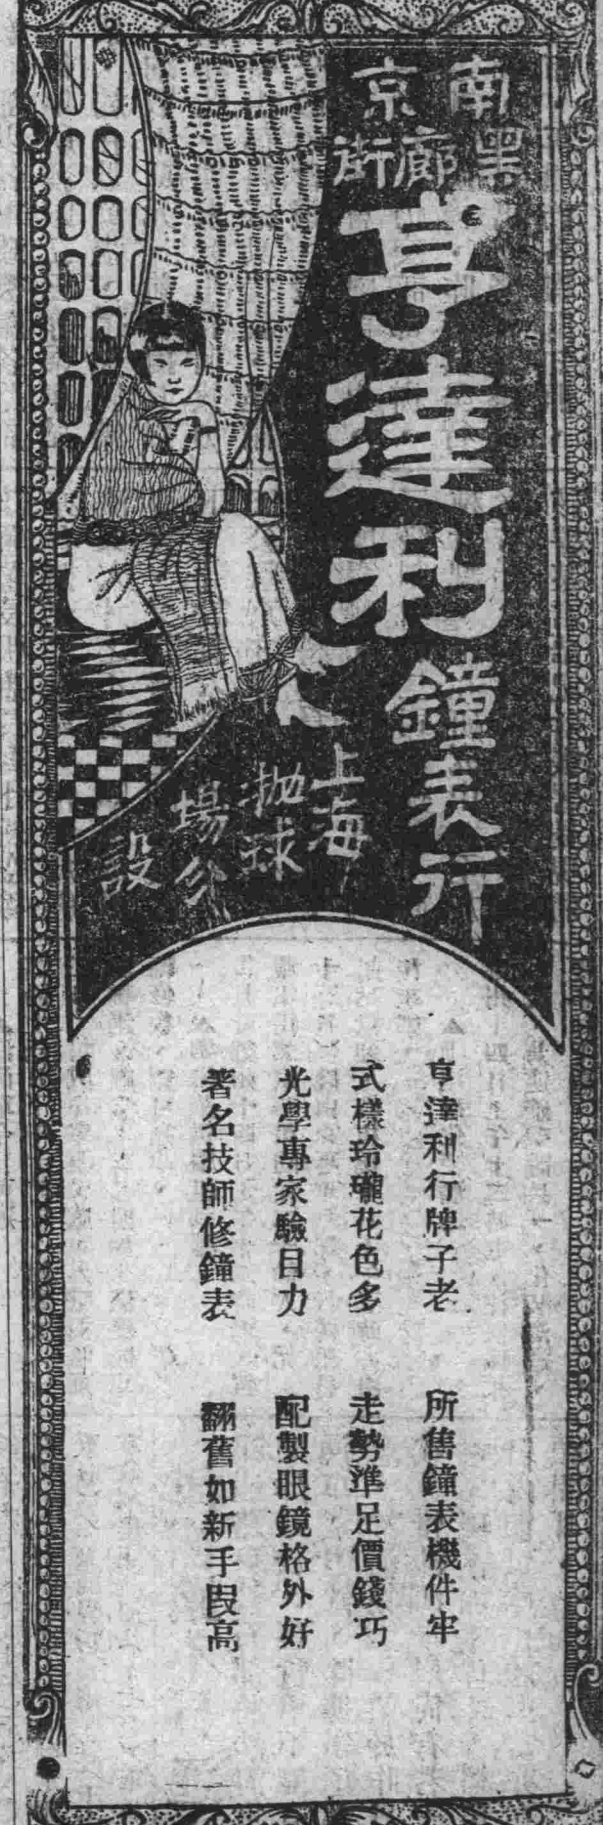 南京
黑廊街
亨達利
鐘表行
上海
拋球
場分
設
亨達利行牌子老 所售鐘表機件牢
式樣玲瓏花色多 走勢準足價錢巧
光學專家驗目力 配製眼鏡格外好
著名技師修鐘表 翻舊如新手段高